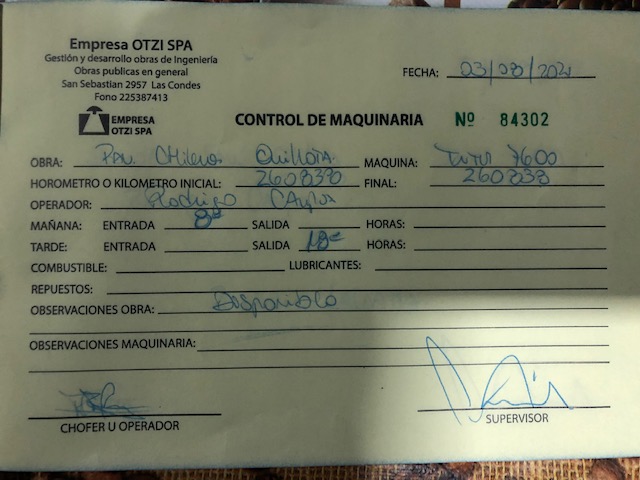 Empresa OTZI SPA
Gestión y desarrollo obras de Ingeniería
Obras publicas en general
San Sebastian 2957 Las Condes
Fono 225387413
FECHA: 03/08/2021
EMPRESA
OTZI SPA
CONTROL DE MAQUINARIA Nº 84302
OBRA: Quillota MAQUINA:
HOROMETRO O KILOMETRO INICIAL: 260838 FINAL: 260838
OPERADOR: Rodrigo
MAÑANA: ENTRADA 8 SALIDA HORAS:
TARDE: ENTRADA SALIDA 18 HORAS:
COMBUSTIBLE: LUBRICANTES:
REPUESTOS:
OBSERVACIONES OBRA: Disponible
OBSERVACIONES MAQUINARIA:
CHOFER U OPERADOR SUPERVISOR